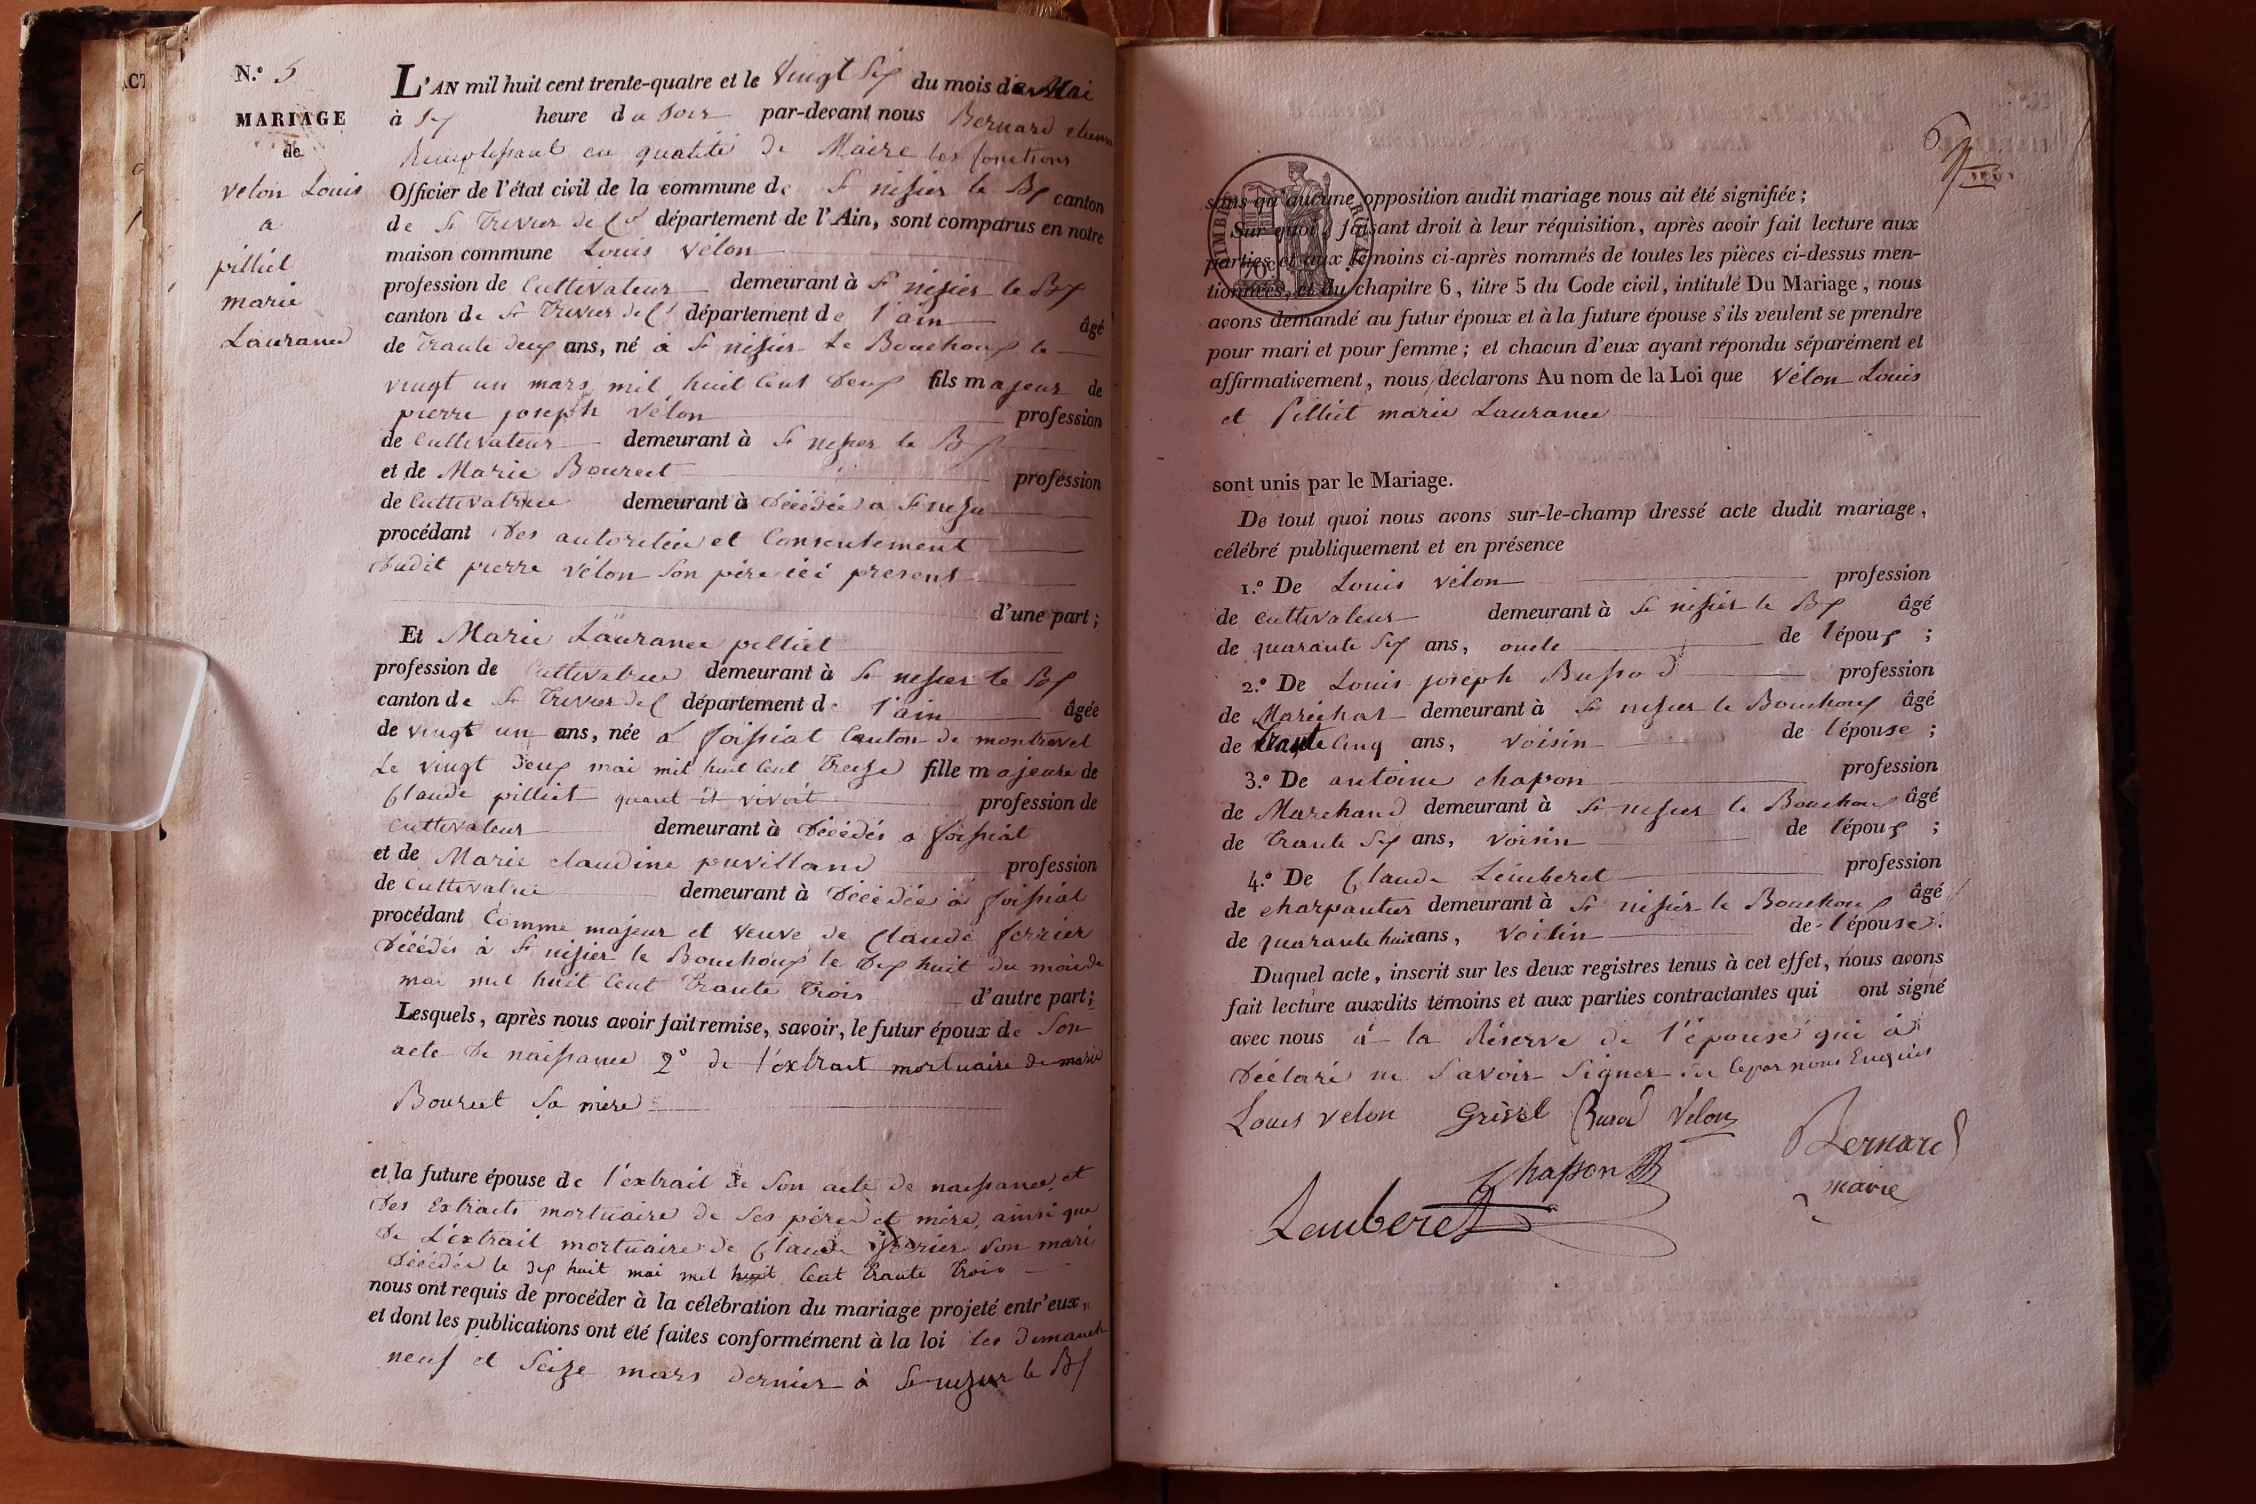 N.º 5
MARIAGE
de
velon Louis
a
pilliet
marie
Lauranc
L'AN mil huit cent trente-quatre et le vingt six du mois de Mai
à six heure du soir par-devant nous Bernard
Remplissant en qualité de Maire les fonctions
Officier de l'état civil de la commune de St nisier le Bx canton
de St Trivier de Ct département de l'Ain, sont comparus en notre
maison commune Louis vélon
profession de Cultivateur demeurant à St nisier le Bx
canton de St Trivier de Ct département de l'ain âgé
de trante deux ans, né à St nisier le Bouchoux le
vingt un mars mil huit cent deux fils majeur de
pierre joseph vélon profession
de cultivateur demeurant à St nisier le Bx
et de Marie Boureet profession
de cultivatrice demeurant à décédée a St
procédant des et Consentement
dudit pierre vélon son père ici present
d'une part;
Et Marie Laurance pilliet
profession de Cultivatrice demeurant à St nisier le Bx
canton de St Trivier de C département de l'ain âgée
de vingt un ans, née à foissiat Canton de montrevel
Le vingt deux mai mil huit cent treize fille majeure de
Claude pilliet quant il vivoit profession de
cultivateur demeurant à décédés a foissiat
et de Marie claudine puvilland profession
de cultivatrice demeurant à décédée à foissiat
procédant Comme majeur et veuve de Claude ferrier
décédés à St nisier le Bouchoux le dix huit du mois de
mai mil huit cent trante trois d'autre part;
Lesquels, après nous avoir fait remise, savoir, le futur époux de son
acte de naissance 2º de l'extrait mortuaire de marie
Boureet sa mère
et la future épouse de l'extrait de son acte de naissance et
des extraits mortuaire de ses père et mère, ainsi que
de L'extrait mortuaire de Claude ferrier son mari
décédée le dix huit mai mil huit cent trante trois
nous ont requis de procéder à la célébration du mariage projeté entr'eux,
et dont les publications ont été faites conformément à la loi les dimanch
neuf et seize mars dernier à St nizier le Bx
sans qu'aucune opposition audit mariage nous ait été signifiée;
Sur quoi, faisant droit à leur réquisition, après avoir fait lecture aux
parties et aux témoins ci-après nommés de toutes les pièces ci-dessus men-
tionnées, et du chapitre 6, titre 5 du Code civil, intitulé Du Mariage, nous
avons demandé au futur époux et à la future épouse s'ils veulent se prendre
pour mari et pour femme; et chacun d'eux ayant répondu séparément et
affirmativement, nous déclarons Au nom de la Loi que Vélon Louis
et pilliet marie Laurance
sont unis par le Mariage.
De tout quoi nous avons sur-le-champ dressé acte dudit mariage,
célébré publiquement et en présence
1.º De Louis vélon profession
de cultivateur demeurant à St nisier le Bx âgé
de quarante six ans, oncle de l'époux;
2.º De Louis joseph Bussod profession
de Maréchat demeurant à St nisier le Bouchoux âgé
de trante cinq ans, voisin de l'épouse;
3.º De antoine chapon profession
de Marchand demeurant à St nisier le Bouchoux âgé
de trante six ans, voisin de l'époux;
4.º De Claude Lemberet profession
de charpantier demeurant à St nisier le Bouchoux âgé
de quarante huit ans, voisin de l'épouse.
Duquel acte, inscrit sur les deux registres tenus à cet effet, nous avons
fait lecture auxdits témoins et aux parties contractantes qui ont signé
avec nous à la Réserve de l'épouse qui à
déclaré ne savoir signer de ce par nous Enquis
Louis velon Grivel Busod Vélon
Bernard
maire
Chapon
Lamberet